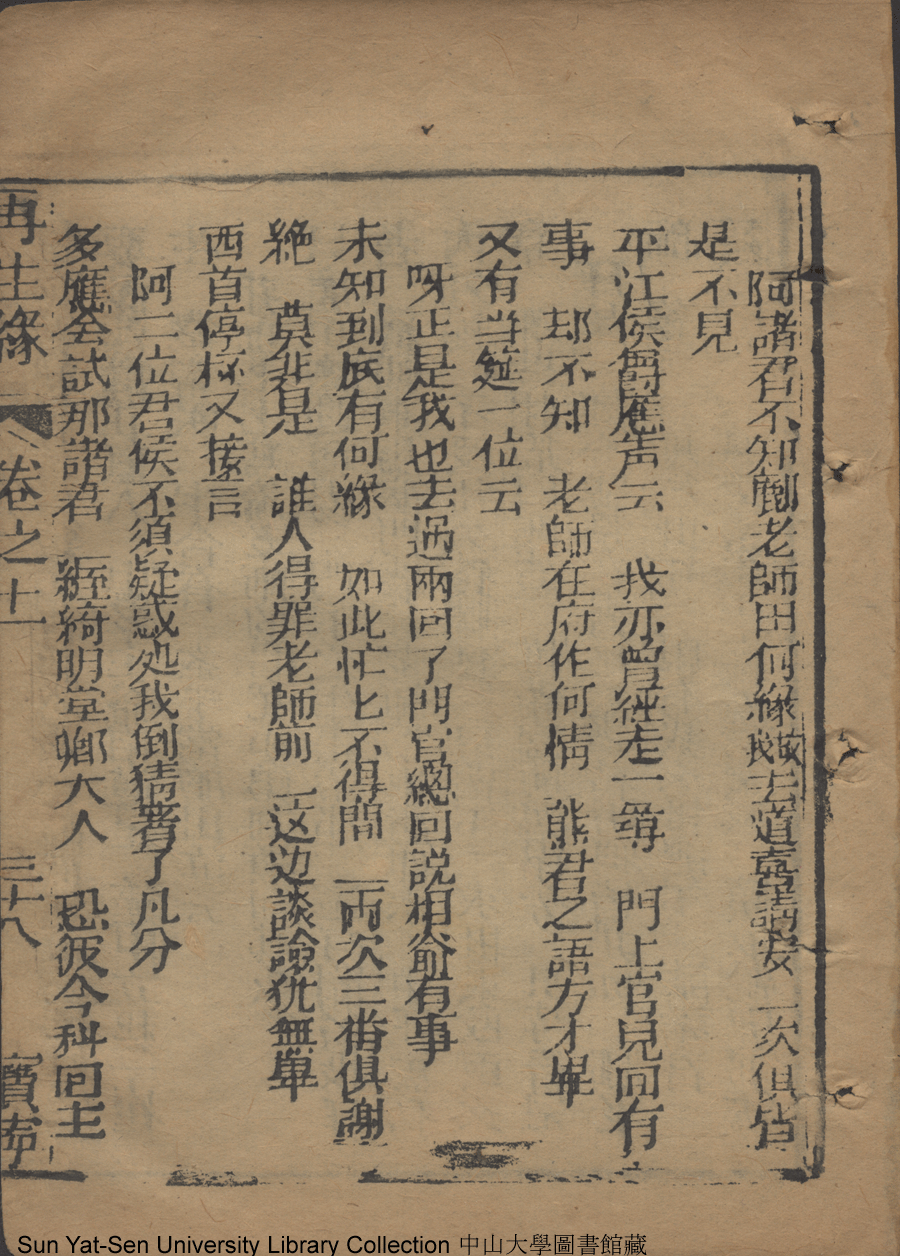 阿諸君不知酈老師因何緣故我去道喜請安一次俱皆
是不見
平江侯爵應声云　我亦曾經走一尊　門上官見回有
事　却不知　老師在府作何情　熊君之語方才畢
又有当筵一位云
呀正是我也去過兩回了門官總回説相爺有事
未知到底有何緣　如此忙匕不得間　一兩次三番俱謝
絶　莫非是　誰人得罪老師前　这边談論犹無畢
西首停杯又接言
阿二位君侯不須疑惑処我倒猜著了几分
多應会試那諸君　經綺明堂鄉大人　恐彼今科回主
再生緣　卷之十一　三十八　寶寧
Sun Yat-Sen University Library Collection 中山大學圖書館藏